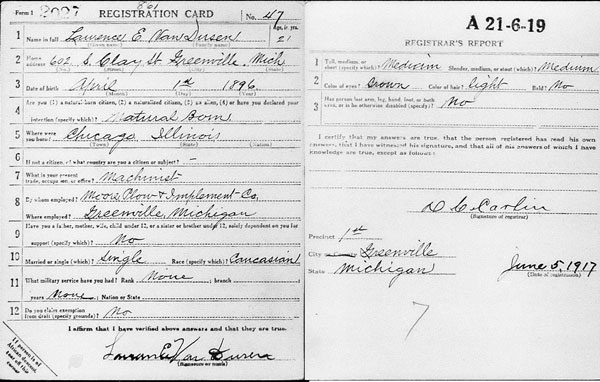 Form 1 2027 801 REGISTRATION CARD No. 47
1 Name in full Lawrence E. Van Dusen Age, in yrs. 21
(Given name) (Family name)
2 Home address 602 S. Clay St Greenville, Mich
(No.) (Street) (City) (State)
3 Date of birth April 1st 1896
(Month) (Day) (Year)
4 Are you (1) a natural born citizen, (2) a naturalized citizen, (3) an alien, (4) or have you declared your
intention (specify which)? Natural Born
5 Where were you born? Chicago Illinois
(Town) (State) (Nation)
6 If not a citizen, of what country are you a citizen or subject? -
7 What is your present trade, occupation, or office? Machinist
8 By whom employed? Moore Plow & Implement Co.
Where employed? Greenville, Michigan
9 Have you a father, mother, wife, child under 12, or a sister or brother under 12, solely dependent on you for
support (specify which)? No
10 Married or single (which)? Single Race (specify which)? Caucasian
11 What military service have you had? Rank None ; branch
years None ; Nation or State
12 Do you claim exemption from draft (specify grounds)? No
I affirm that I have verified above answers and that they are true.
Lawrence E Van Dusen
(Signature or mark)
If person is of African descent, tear off this corner
A 21-6-19
REGISTRAR'S REPORT
1 Tall, medium, or short (specify which)? Medium Slender, medium, or stout (which)? Medium
2 Color of eyes? Brown Color of hair? light Bald? No
3 Has person lost arm, leg, hand, foot, or both eyes, or is he otherwise disabled (specify)? No
I certify that my answers are true, that the person registered has read his own
answers, that I have witnessed his signature, and that all of his answers of which I have
knowledge are true, except as follows:
D C Carlin
(Signature of registrar)
Precinct 1st
City Greenville
State Michigan
June 5, 1917
(Date of registration)
7